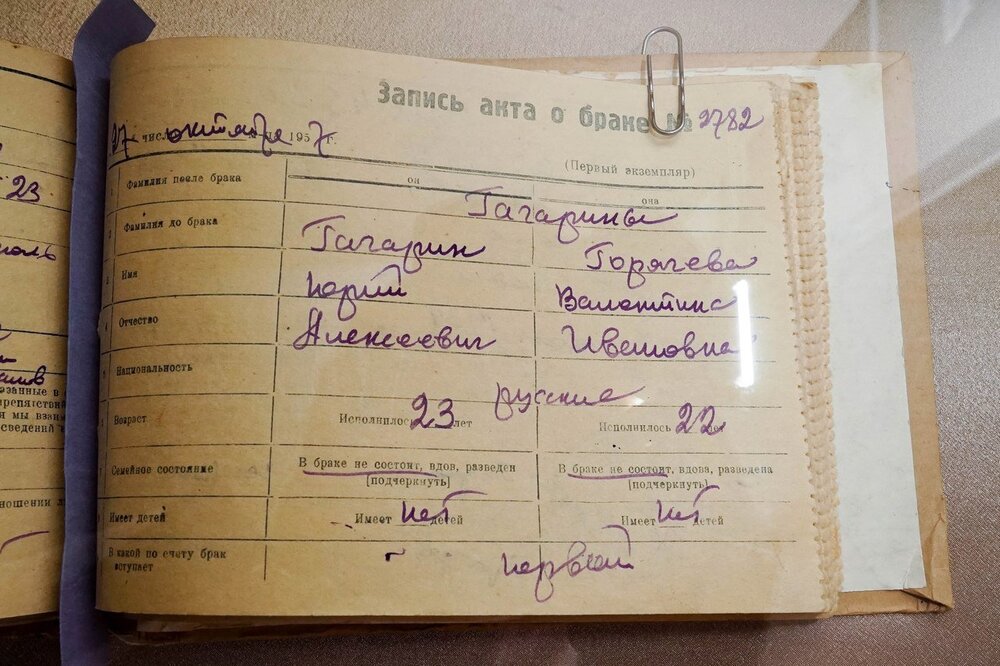 Запись акта о браке № 2782
27 числа октября 1957 г.
(Первый экземпляр)
Фамилия после брака
он
она
Гагарины
Фамилия до брака
Гагарин
Горячева
Имя
Юрий
Валентина
Отчество
Алексеевич
Ивановна
Национальность
русские
Возраст
Исполнилось 23 лет
Исполнилось 22 лет
Семейное состояние
В браке не состоит, вдов, разведен
(подчеркнуть)
В браке не состоит, вдова, разведена
(подчеркнуть)
Имеет детей
Имеет нет детей
Имеет нет детей
В какой по счету брак
вступает
первый
23